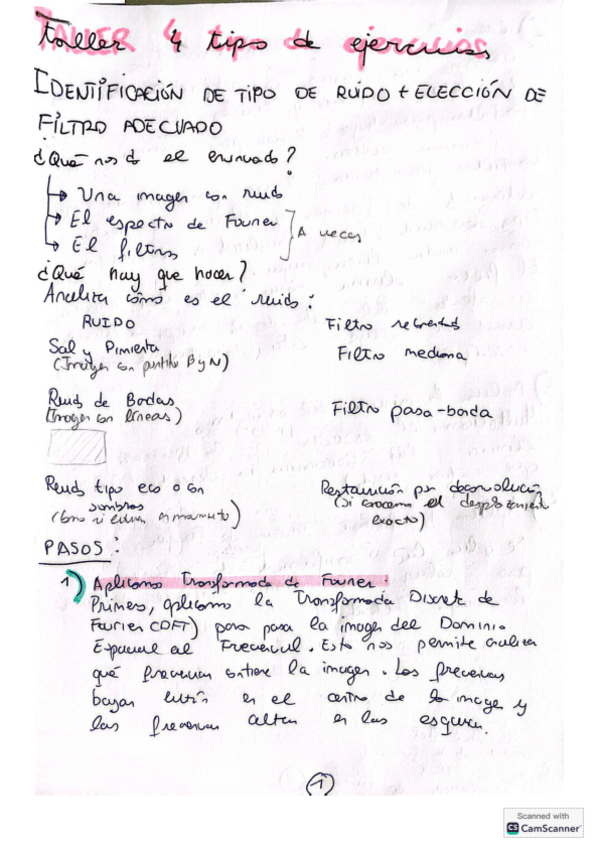 Taller 4 tipo de ejercicios
IDENTIFICACIÓN DE TIPO DE RUIDO + ELECCIÓN DE
FILTRO ADECUADO
¿Qué nos da el enunciado?
Una imagen con ruido
El espectro de Fourier
El filtros
A veces
¿Qué hay que hacer?
Analizar cómo es el ruido:
RUIDO Filtro
Sal y Pimienta Filtro mediana
(Imagen con puntitos B y N)
Ruido de Bandas Filtro pasa-banda
(Imagen con líneas)
Ruido tipo eco o con Restauración por deconvolución
sombras (si conocemos el desplazamiento
(como si en movimiento) exacto)
PASOS:
1) Aplicamos Transformada de Fourier:
Primero, aplicamos la Transformada Discreta de
Fourier (DFT) para pasar la imagen del Dominio
Espacial al Frecuencial. Esto nos permite analizar
qué frecuencias contiene la imagen. Las frecuencias
bajas están en el centro de la imagen y
las frecuencias altas en las esquinas.
1
Scanned with
CS CamScanner